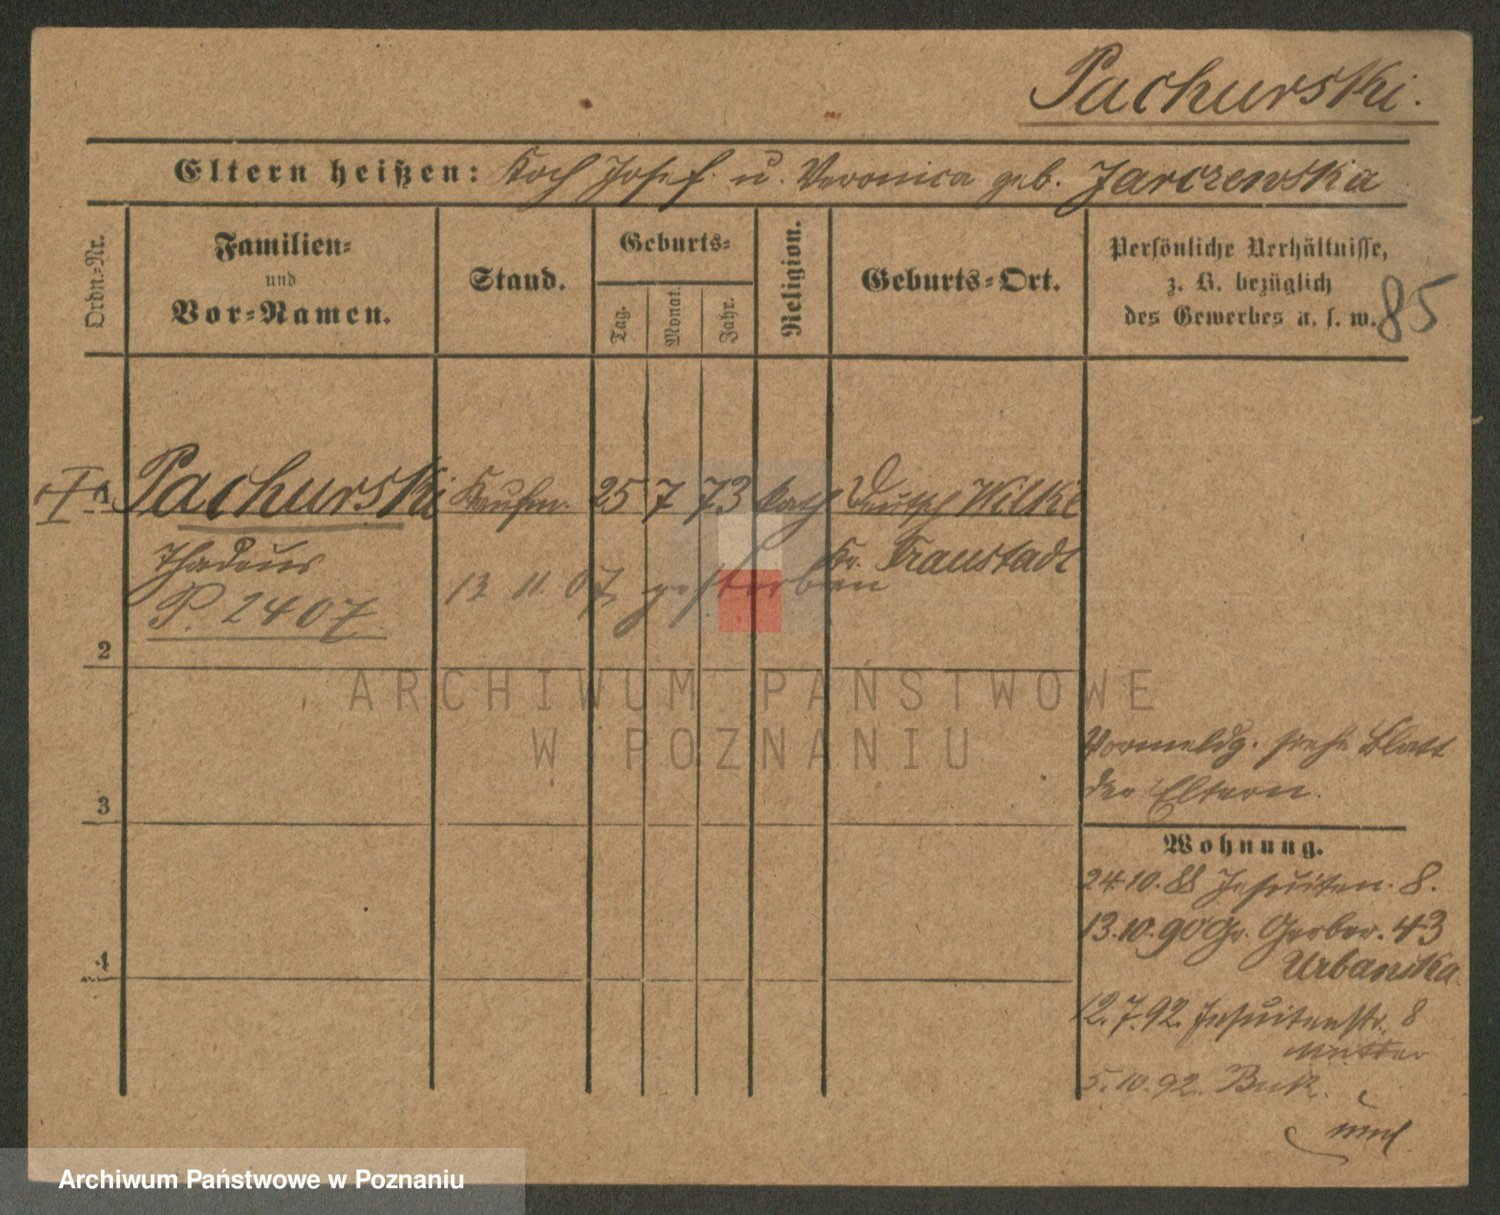 Pachurski.
Eltern heißen: Koch Josef u. Veronica geb. Jarczewska
Ordn=Nr.
Familien=
und
Vor=Namen.
Stand.
Geburts=
Tag.
Monat.
Jahr.
Religion.
Geburts=Ort.
Persönliche Verhältnisse,
z. B. bezüglich
des Gewerbes u. s. w.
85
1 Pachurski Kaufm. 25 7 73 kath Deutsch Wilke
Thadeus Kr. Fraustadt
13 11. 07 gestorben
P. 2407.
2
ARCHIWUM PAŃSTWOWE
W POZNANIU
Vormeldg. siehe Blatt
der Eltern.
3
Wohnung.
24.10.88 Jesuiten. 8.
13.10.90 Gr. Gerber. 43
Urbanska.
4
12.7.92. Jesuitenstr. 8
Mutter
5.10.92. Buk.
und
Archiwum Państwowe w Poznaniu